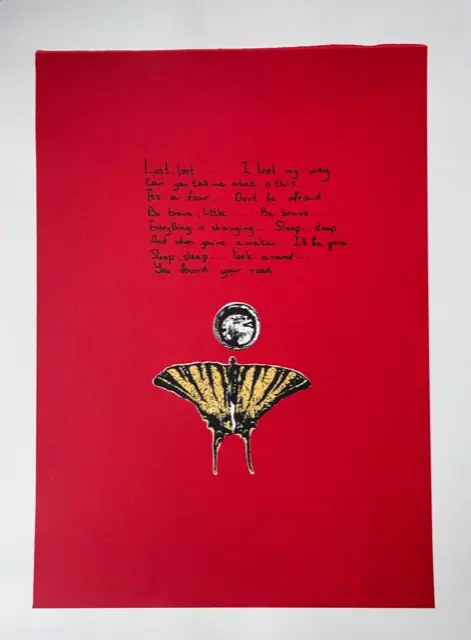 Lost, lost I lost my way
Can you tell me what is this...
It's a fear... Don't be afraid...
Be brave, little.... Be brave
Everything is changing.... Sleep, sleep
And when you've awaken... I'll be gone...
Sleep, sleep.... Look around...
You found your road